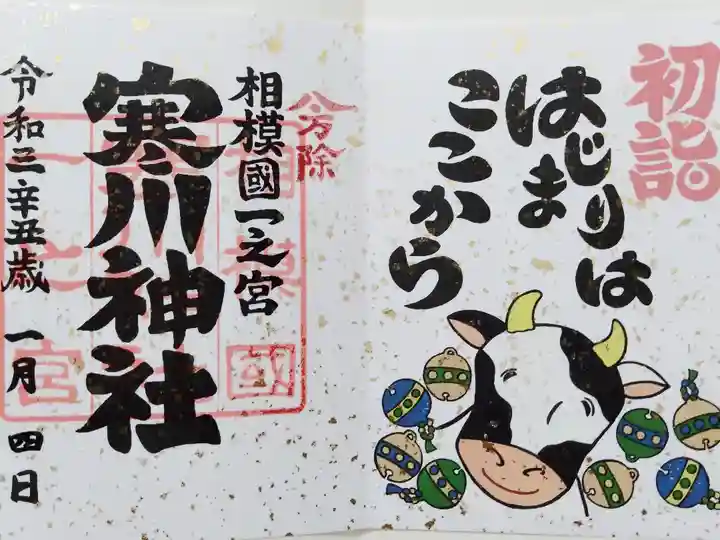 初詣
はじまりは
ここから
八方除
相模國一之宮
寒川神社
令和三辛丑歳 一月 四日
相模國
一之宮